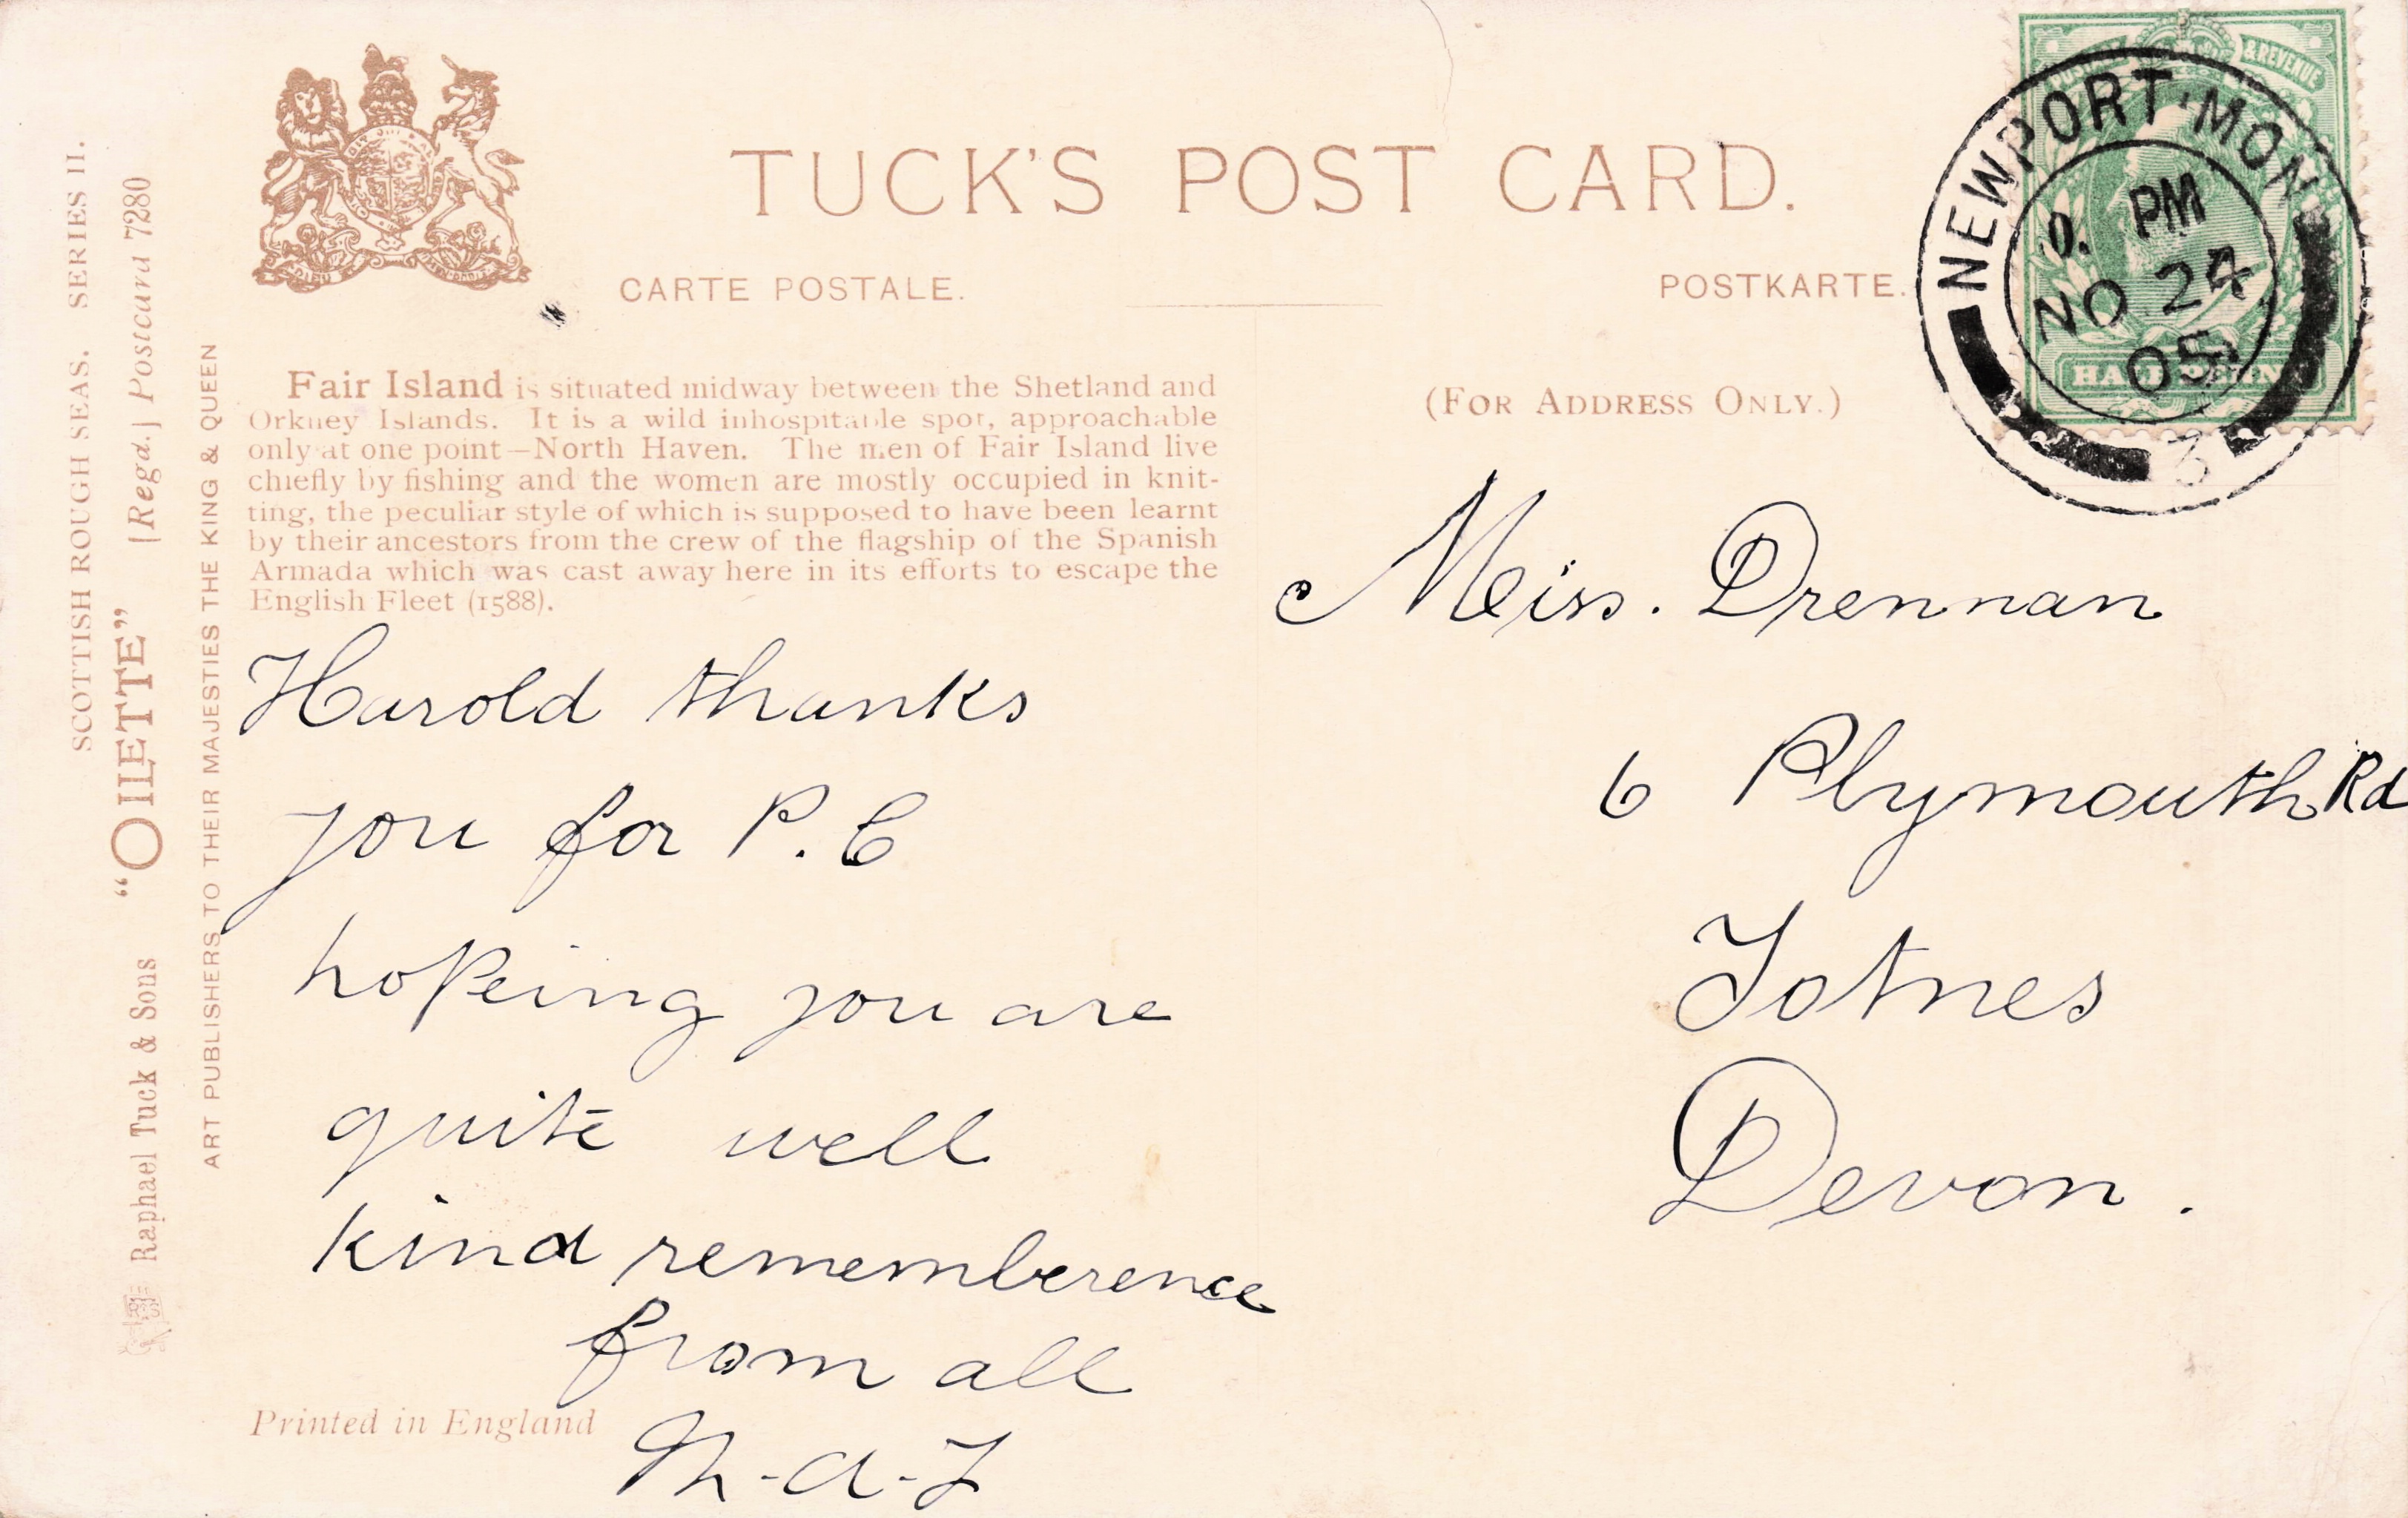 TUCK'S POST CARD.
CARTE POSTALE.
POSTKARTE.
POSTAGE & REVENUE
HALF PENNY
NEWPORT·MON
PM
NO 24
05
3
SCOTTISH ROUGH SEAS. SERIES II.
Raphael Tuck & Sons "OILETTE" [Regd.] Postcard 7280
ART PUBLISHERS TO THEIR MAJESTIES THE KING & QUEEN
Fair Island is situated midway between the Shetland and
Orkney Islands. It is a wild inhospitable spot, approachable
only at one point—North Haven. The men of Fair Island live
chiefly by fishing and the women are mostly occupied in knit-
ting, the peculiar style of which is supposed to have been learnt
by their ancestors from the crew of the flagship of the Spanish
Armada which was cast away here in its efforts to escape the
English Fleet (1588).
Harold thanks
you for P.C
hopeing you are
quite well
kind rememberence
from all
Printed in England
(FOR ADDRESS ONLY.)
Miss. Drennan
6 Plymouth Rd
Totnes
Devon.